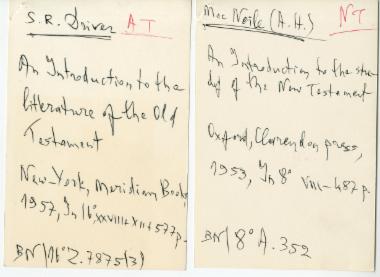 S. R. Driver AT
An Introduction to the
litterature of the Old
Testament
New-York, Meridian Books
1957, In 16°, xxviii + xii + 577 p.
BN (16° Z. 7875 (3)
Mac Neile (A.H.) NT
An Introduction to the stu-
dy of the New Testament
Oxford, Clarendon press,
1953, In 8° viii-487 p.
BN (8° A. 352